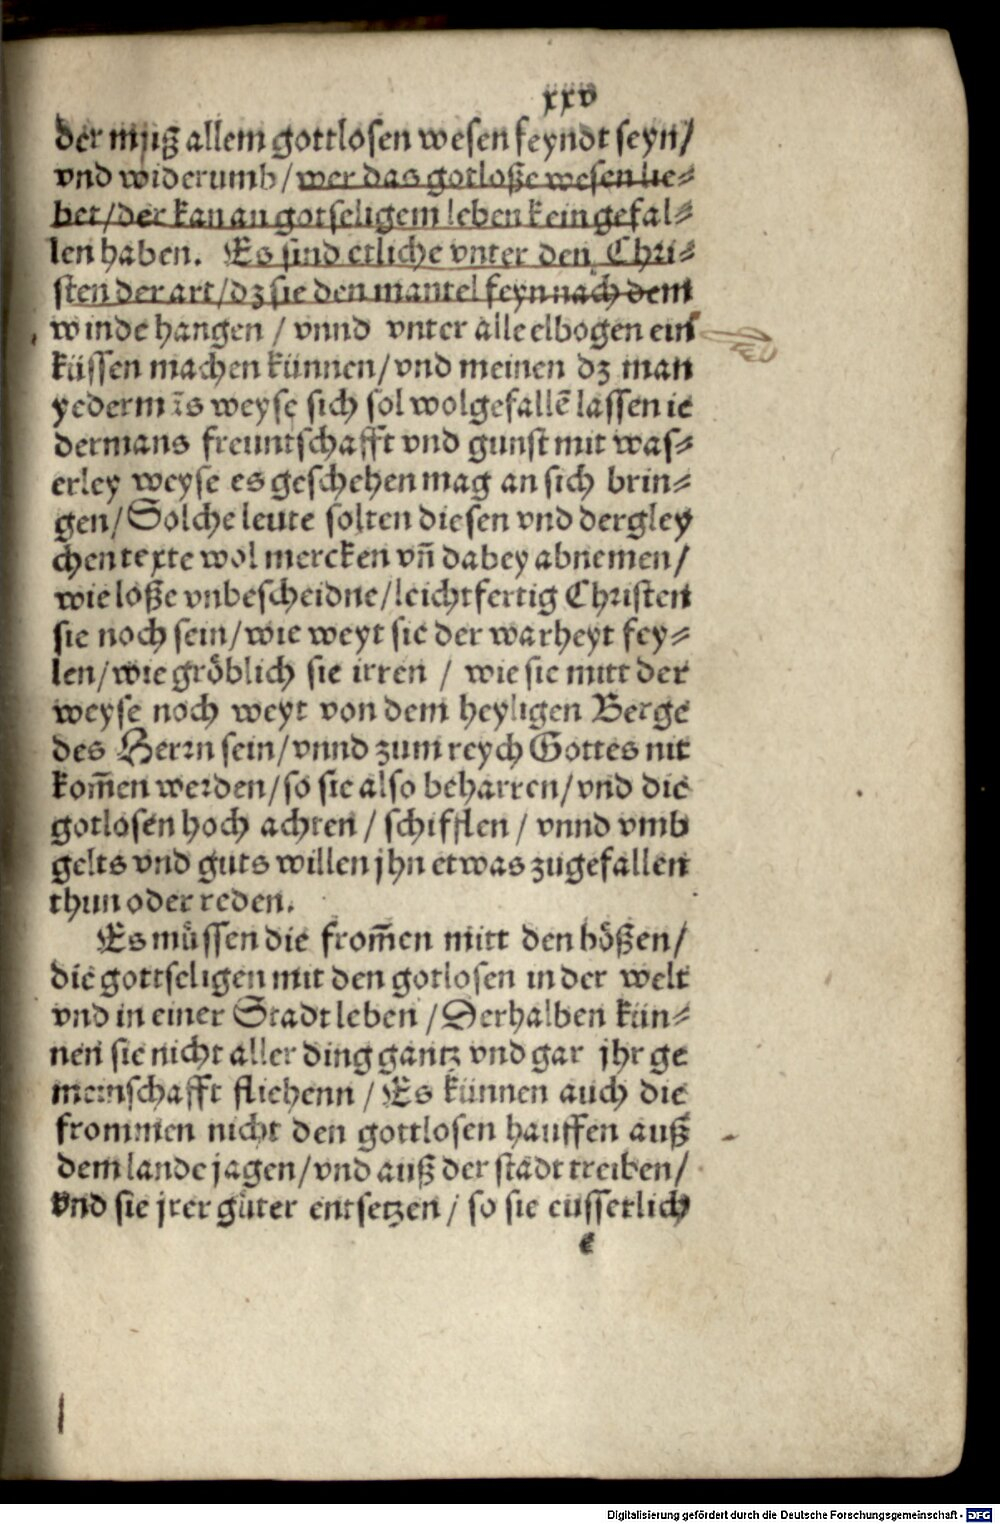 xxv
der muß allem gottlosen wesen feyndt seyn/
vnd widerumb/wer das gotloße wesen lie⸗
bet/der kan an gotseligem leben kein gefal⸗
len haben. Es sind etliche vnter den Chri⸗
sten der art/dz sie den mantel feyn nach dem
winde hangen / vnnd vnter alle elbogen ein
küssen machen künnen/vnd meinen dz man
yedermãs weyse sich sol wolgefallẽ lassen ie
dermans freuntschafft vnd gunst mit was⸗
erley weyse es geschehen mag an sich brin⸗
gen/Solche leute solten diesen vnd dergley
chen texte wol mercken vñ dabey abnemen/
wie loße vnbescheidne/leichtfertig Christen
sie noch sein/wie weyt sie der warheyt fey⸗
len/wie gröblich sie irren / wie sie mitt der
weyse noch weyt von dem heyligen Berge
des Herrn sein/vnnd zum reych Gottes nit
kom̃en werden/so sie also beharren/vnd die
gotlosen hoch achten / schifflen / vnnd vmb
gelts vnd guts willen jhn etwas zugefallen
thun oder reden.
Es müssen die from̃en mitt den bößen/
die gottseligen mit den gotlosen in der welt
vnd in einer Stadt leben /Derhalben kün⸗
nen sie nicht aller ding gantz vnd gar jhr ge
meinschafft fliehenn / Es künnen auch die
frommen nicht den gottlosen hauffen auß
dem lande jagen/vnd auß der stadt treiben/
vnd sie jrer güter entsetzen / so sie eusserlich
e
Digitalisierung gefördert durch die Deutsche Forschungsgemeinschaft - DFG